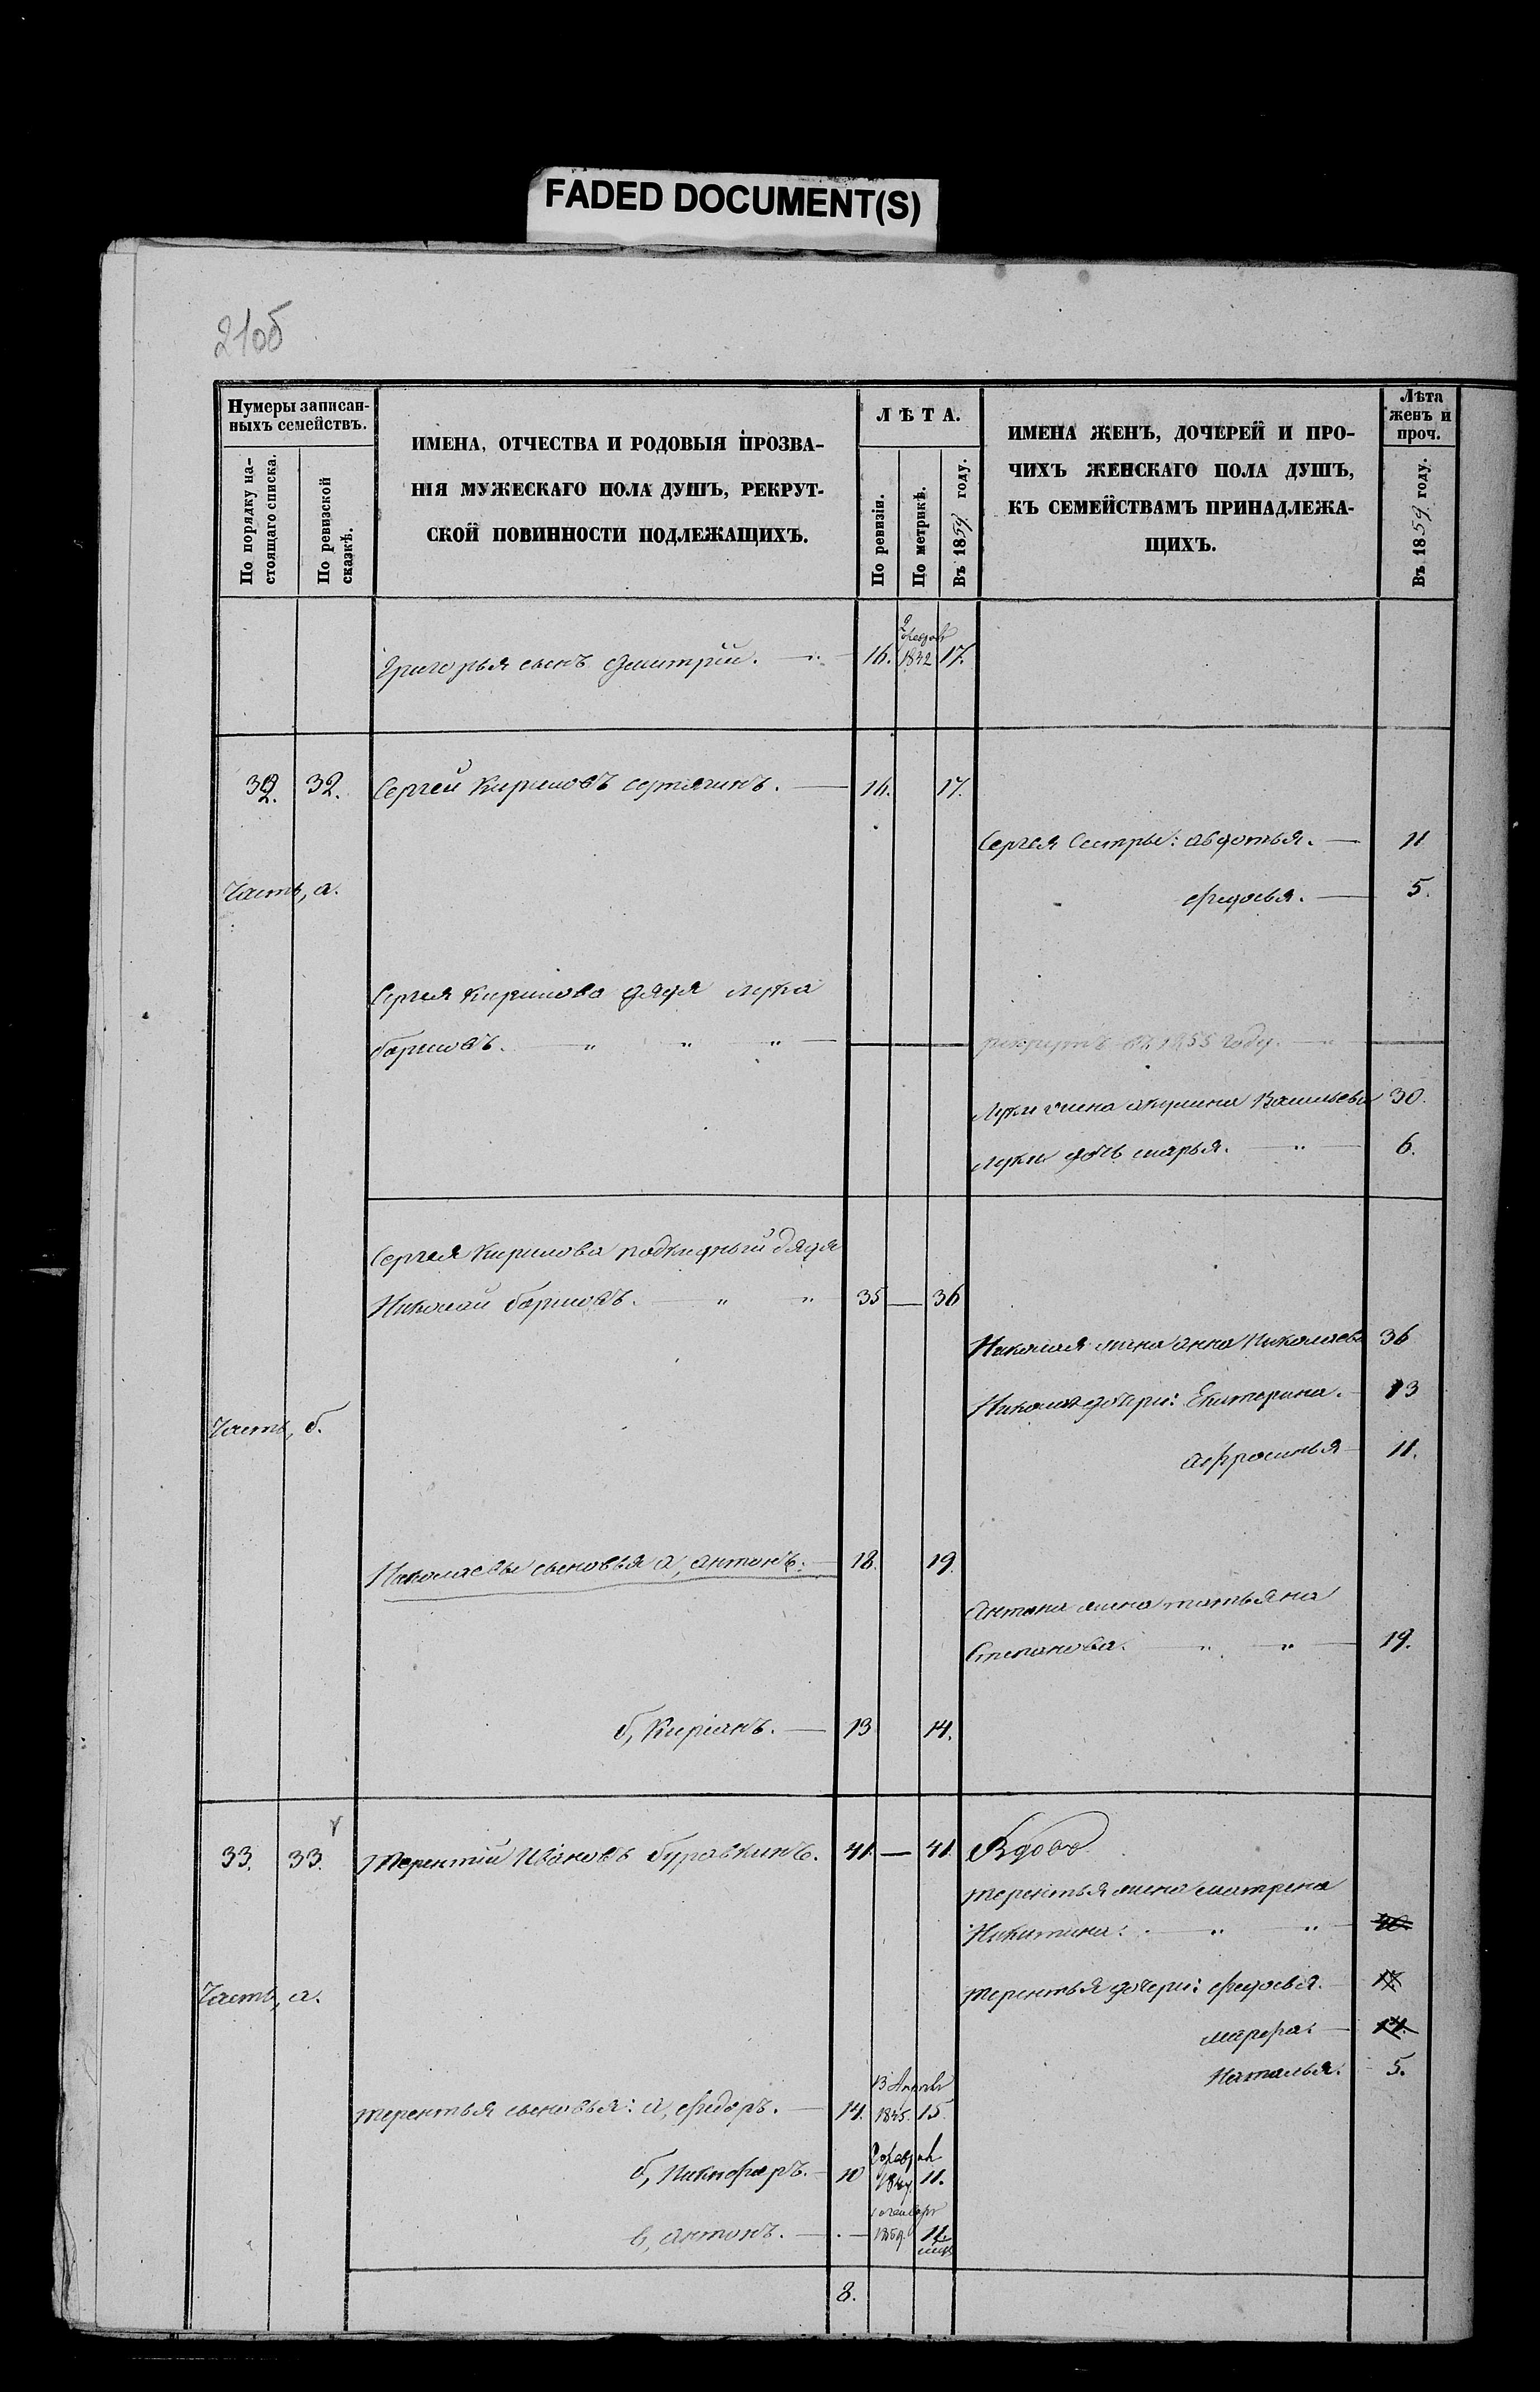 FADED DOCUMENT(S)
21об
Нумеры записан-
ныхъ семействъ.
По порядку на-
стоящаго списка.
По ревизской
сказкѣ.
ИМЕНА, ОТЧЕСТВА И РОДОВЫЯ ПРОЗВА-
НІЯ МУЖЕСКАГО ПОЛА ДУШЪ, РЕКРУТ-
СКОЙ ПОВИННОСТИ ПОДЛЕЖАЩИХЪ.
ЛѢТА.
По ревизіи.
По метрикѣ.
Въ 1859 году.
ИМЕНА ЖЕНЪ, ДОЧЕРЕЙ И ПРО-
ЧИХЪ ЖЕНСКАГО ПОЛА ДУШЪ,
КЪ СЕМЕЙСТВАМЪ ПРИНАДЛЕЖА-
ЩИХЪ.
Лѣта
женъ и
проч.
Въ 1859 году.
Григорья сынъ Дмитрій. 16. 1842 17.
32. 32. Сергей Кириловъ 16. 17.
Сергея Сестры: авдотья. 11
Часть, а.
федосья. 5.
Сергея Кирилова дядя лука
борисовъ. рекрутъ въ 1855 году.
Луки жена акулина Васильева 30.
Луки дочь марья. 6.
Сергея Кирилова дядя
Николай борисовъ. 35 — 36
Николая жена анна Николаева 36
Николая дочери: Екатерина. 13
Часть, б.
афросинья 11.
Николаевы сыновья а, антонъ. 18. 19.
Антона жена татьяна
Степанова. 19.
б, Киріанъ. 13 14.
33. 33. Терентій Ивановъ Буравкинъ. 41 — 41 Вдово
терентья жена матрена
Никитина.
Часть, а.
терентья дочери: федосья. 17.
марфа. 14.
Наталья. 5.
13 Апреля
терентья сыновья: а, федоръ. 14. 1845. 15.
б, Никифоръ. 10 11.
в, антонъ. 11
8.